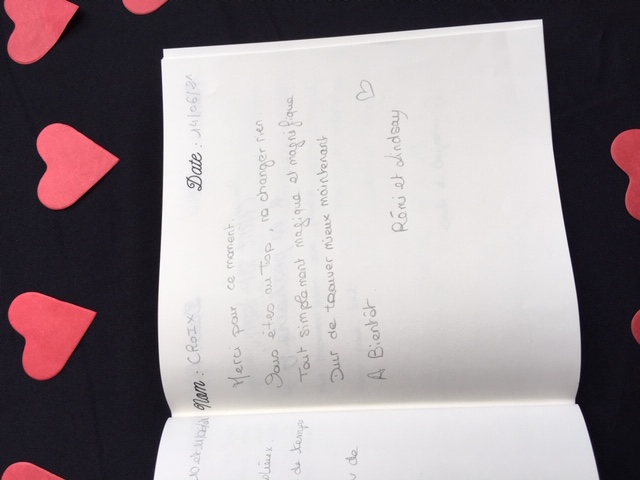 Nom : CROIX Date : 14/06/21
Merci pour ce moment.
Vous êtes au Top, ne changer rien
Tout simplement magique et magnifique
Dur de trouver mieux maintenant
A Bientôt ♡
Rémi et Lindsay
de temps
de